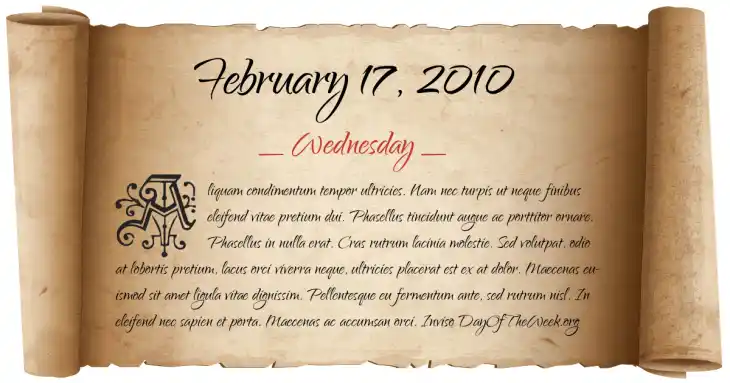 February 17, 2010
_ Wednesday _
Aliquam condimentum tempor ultricies. Nam nec turpis ut neque finibus
eleifend vitae pretium dui. Phasellus tincidunt augue ac porttitor ornare.
Phasellus in nulla erat. Cras rutrum lacinia molestie. Sed volutpat, odio
at lobortis pretium, lacus orci viverra neque, ultricies placerat est ex at dolor. Maecenas eu-
ismod sit amet ligula vitae dignissim. Pellentesque eu fermentum ante, sed rutrum nisl. In
eleifend nec sapien et porta. Maecenas ac accumsan orci. Inviso DayOfTheWeek.org